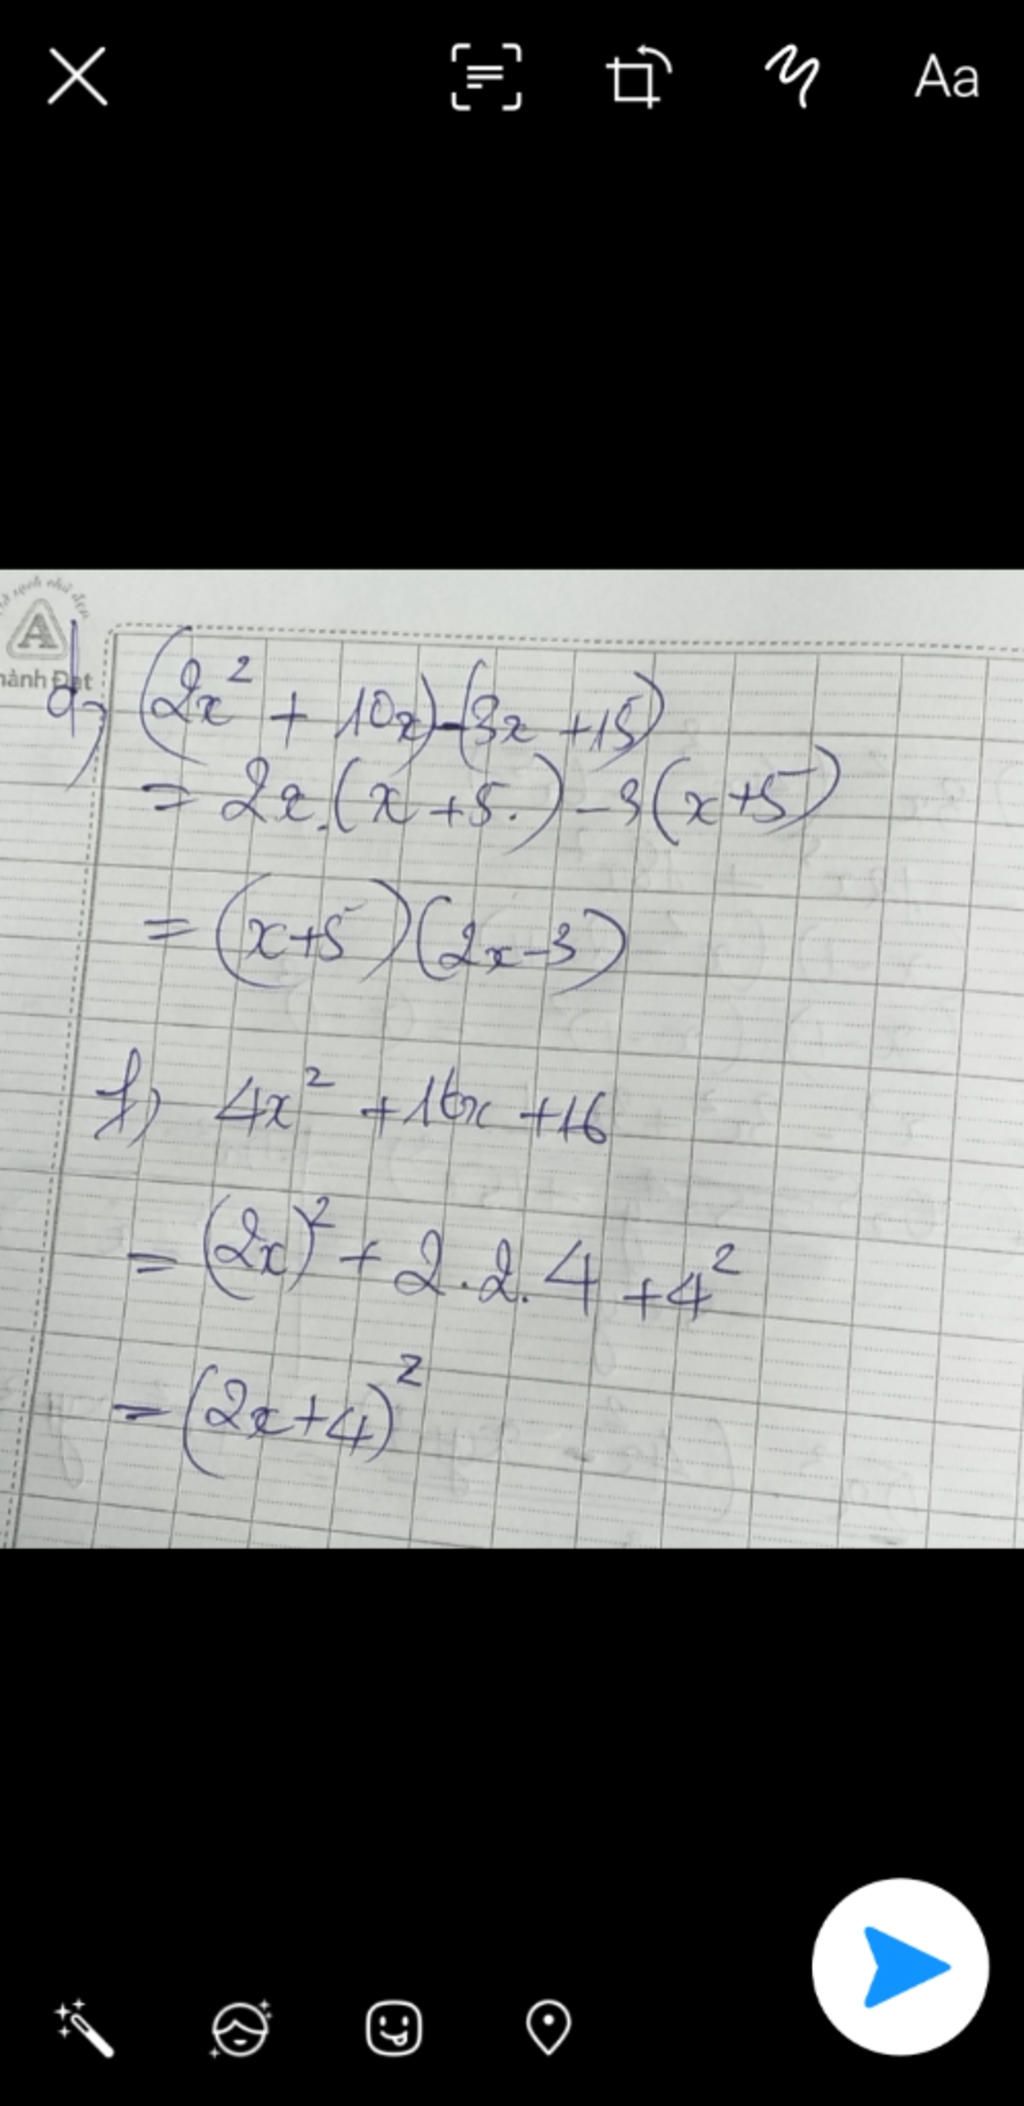 Aa
A
d) (2x² + 10x) - (3x + 15)
= 2x.(x + 5.) - 3(x + 5)
= (x + 5)(2x - 3)
f) 4x² + 16x + 16
= (2x)² + 2.2.4 + 4²
= (2x + 4)²